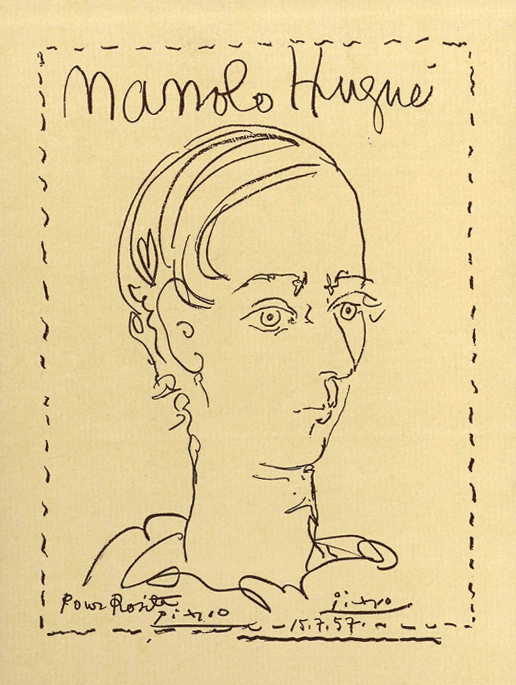 Manolo Hugué
Pour Rosita
Picasso
Picasso
15.7.57.